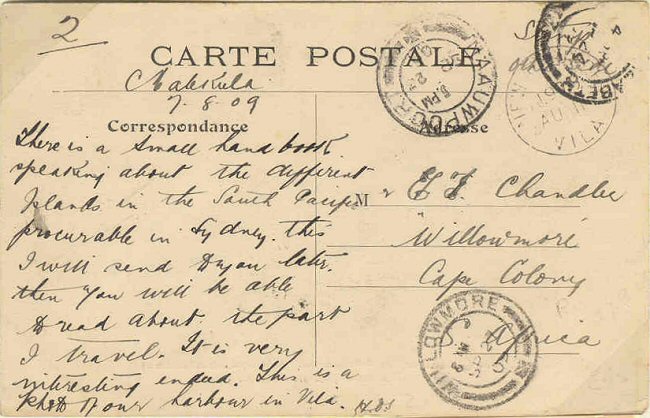 2
CARTE POSTALE
Malekula
7.8.09
Correspondance
Adresse
There is a small hand book
speaking about the different
Islands in the South Pacific
procurable in Sydney. this
I will send to you later.
then you will be able
to read about the part
I travel. It is very
interesting indeed. This is a
photo of our harbour in Vila. HDS
M r E F. Chandler
Willowmore
Cape Colony
S. Africa
NAAUWPOORT
5 PM
VILA
WILLOWMORE